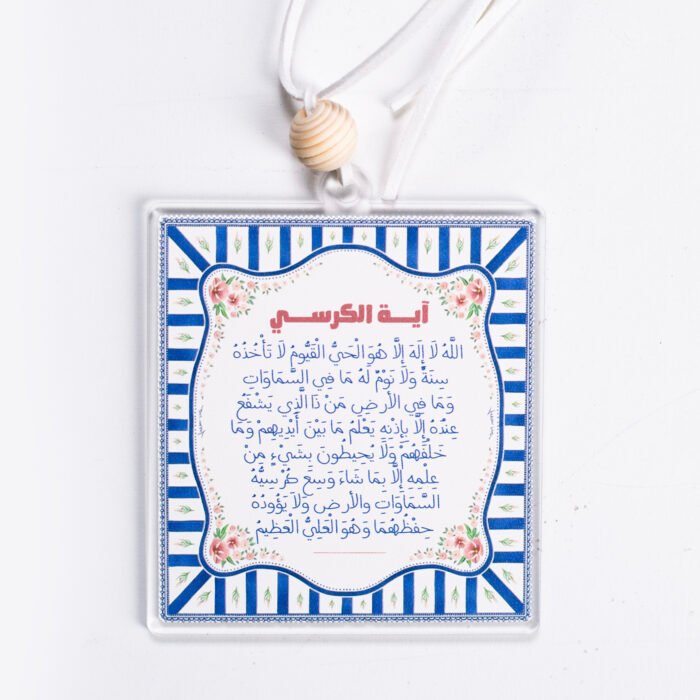 آية الكرسي
اللَّهُ لَا إِلَهَ إِلَّا هُوَ الْحَيُّ الْقَيُّومُ لَا تَأْخُذُهُ
سِنَةٌ وَلَا نَوْمٌ لَهُ مَا فِي السَّمَاوَاتِ
وَمَا فِي الأَرْضِ مَنْ ذَا الَّذِي يَشْفَعُ
عِنْدَهُ إِلَّا بِإِذْنِهِ يَعْلَمُ مَا بَيْنَ أَيْدِيهِمْ وَمَا
خَلْفَهُمْ وَلَا يُحِيطُونَ بِشَيْءٍ مِنْ
عِلْمِهِ إِلَّا بِمَا شَاءَ وَسِعَ كُرْسِيُّهُ
السَّمَاوَاتِ والأَرْضَ وَلَا يَؤُودُهُ
حِفْظُهُمَا وَهُوَ الْعَلِيُّ الْعَظِيمُ